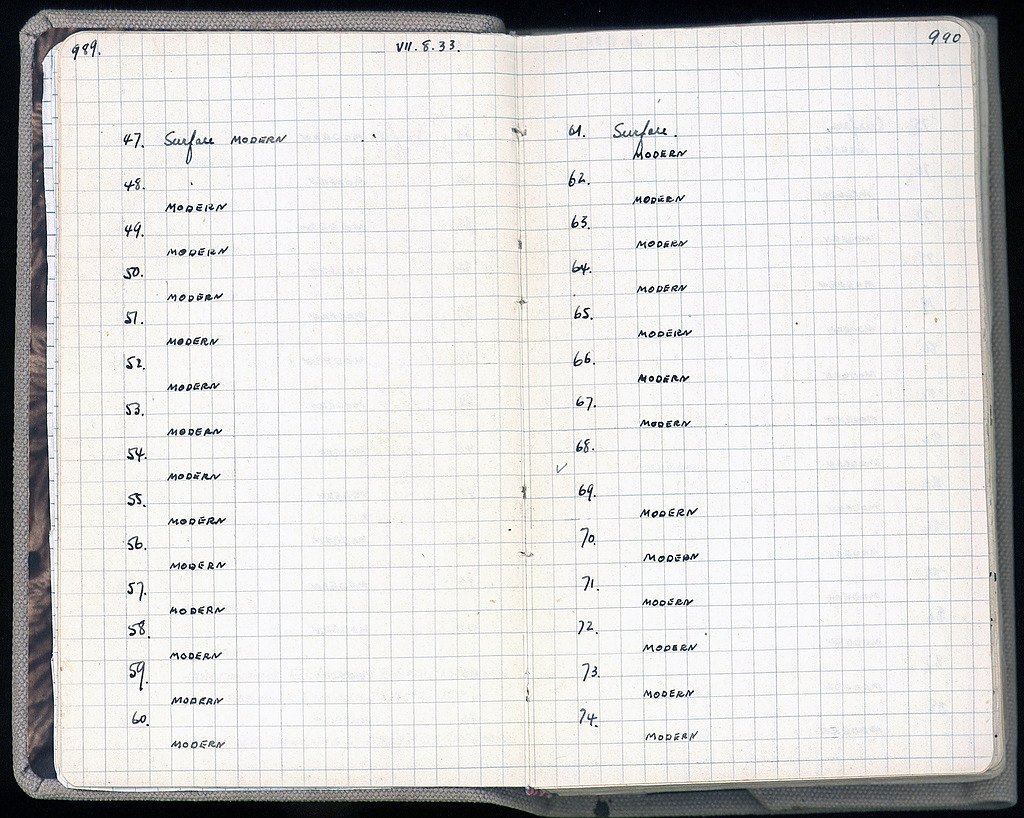 989.
VII. 8. 33.
47. Surface MODERN
48.
MODERN
49.
MODERN
50.
MODERN
51.
MODERN
52.
MODERN
53.
MODERN
54.
MODERN
55.
MODERN
56.
MODERN
57.
MODERN
58.
MODERN
59.
MODERN
60.
MODERN
990
61. Surface.
MODERN
62.
MODERN
63.
MODERN
64.
MODERN
65.
MODERN
66.
MODERN
67.
MODERN
68.
69.
MODERN
70.
MODERN
71.
MODERN
72.
MODERN
73.
MODERN
74.
MODERN